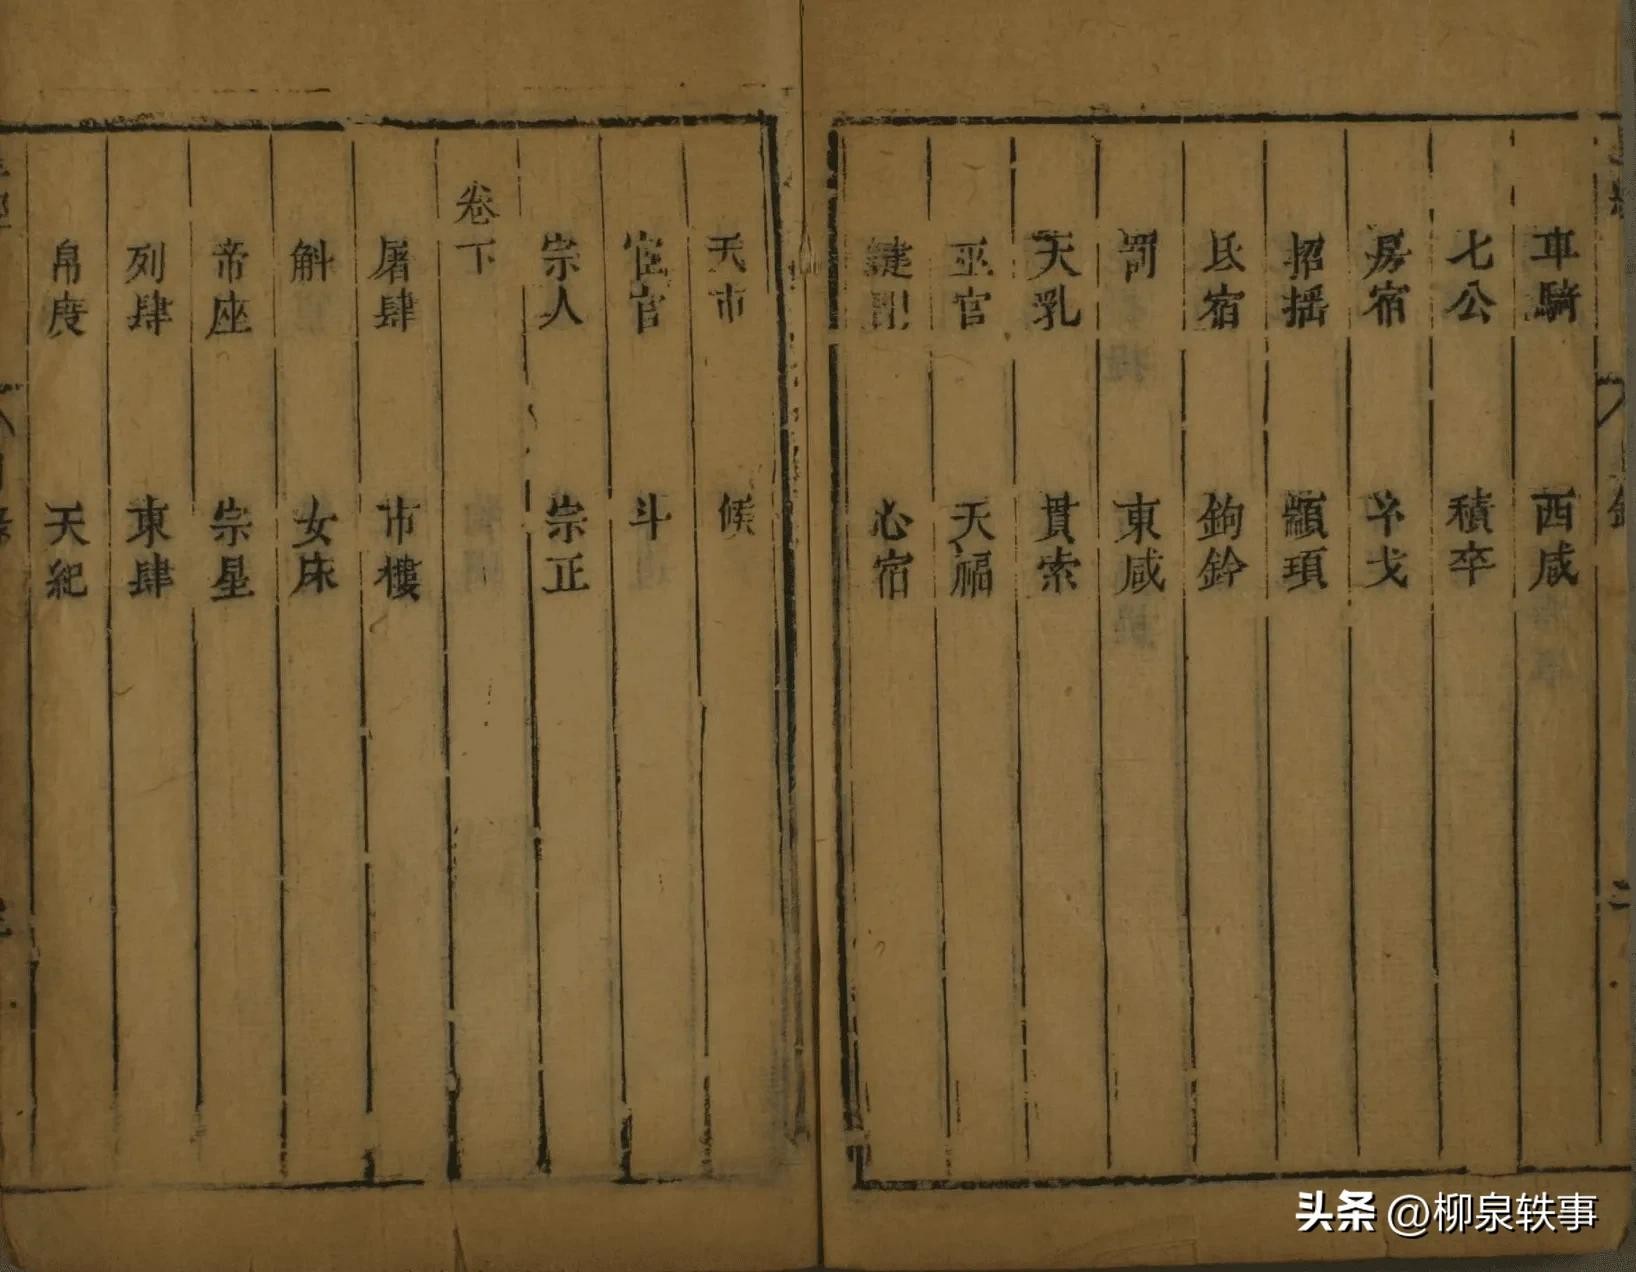 車騎 西咸
七公 積卒
房宿 梗戈
招揺 顓頊
氐宿 鉤鈐
罰 東咸
天乳 貫索
巫官 天福
鍵閉 心宿
天市 候
宦官 斗
宗人 宗正
卷下
屠肆 市樓
斛 女床
帝座 宗星
列肆 東肆
帛度 天紀
头条 @柳泉轶事